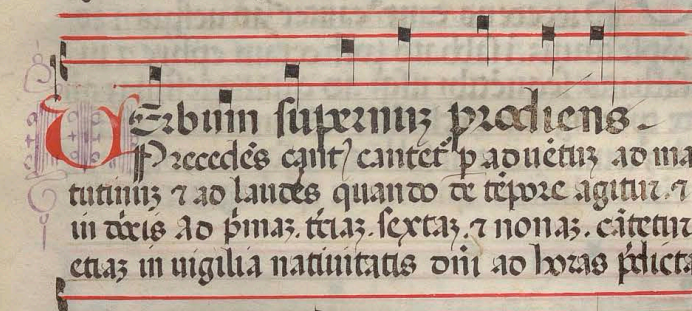 Verbum supernuʒ prodiens.
Precedēs cant᷒ cantet᷑ p aduētuʒ ad ma
tutinuʒ ⁊ ad laudes quando de tēpore agitur. ⁊
in dōxis ad p̄maʒ. t̄ciaʒ. sextaʒ. ⁊ nonaʒ. cātetur
etiaʒ in uigilia natiuitatis dn̄i ad horas p̄dicta